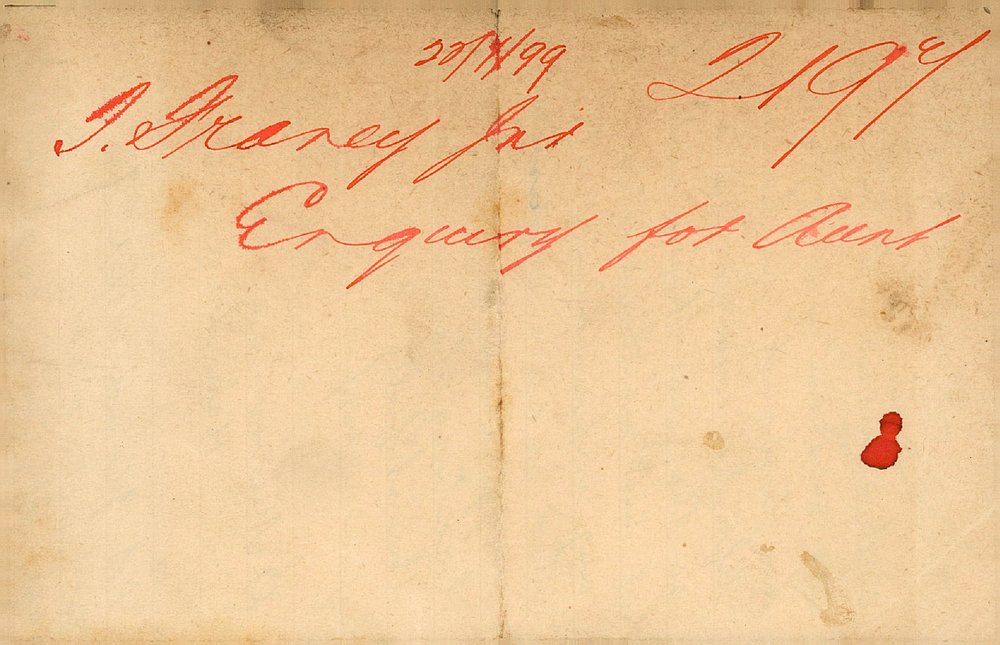 22/4/99 2197
J. Franey Jnr
Enquiry for Aunt